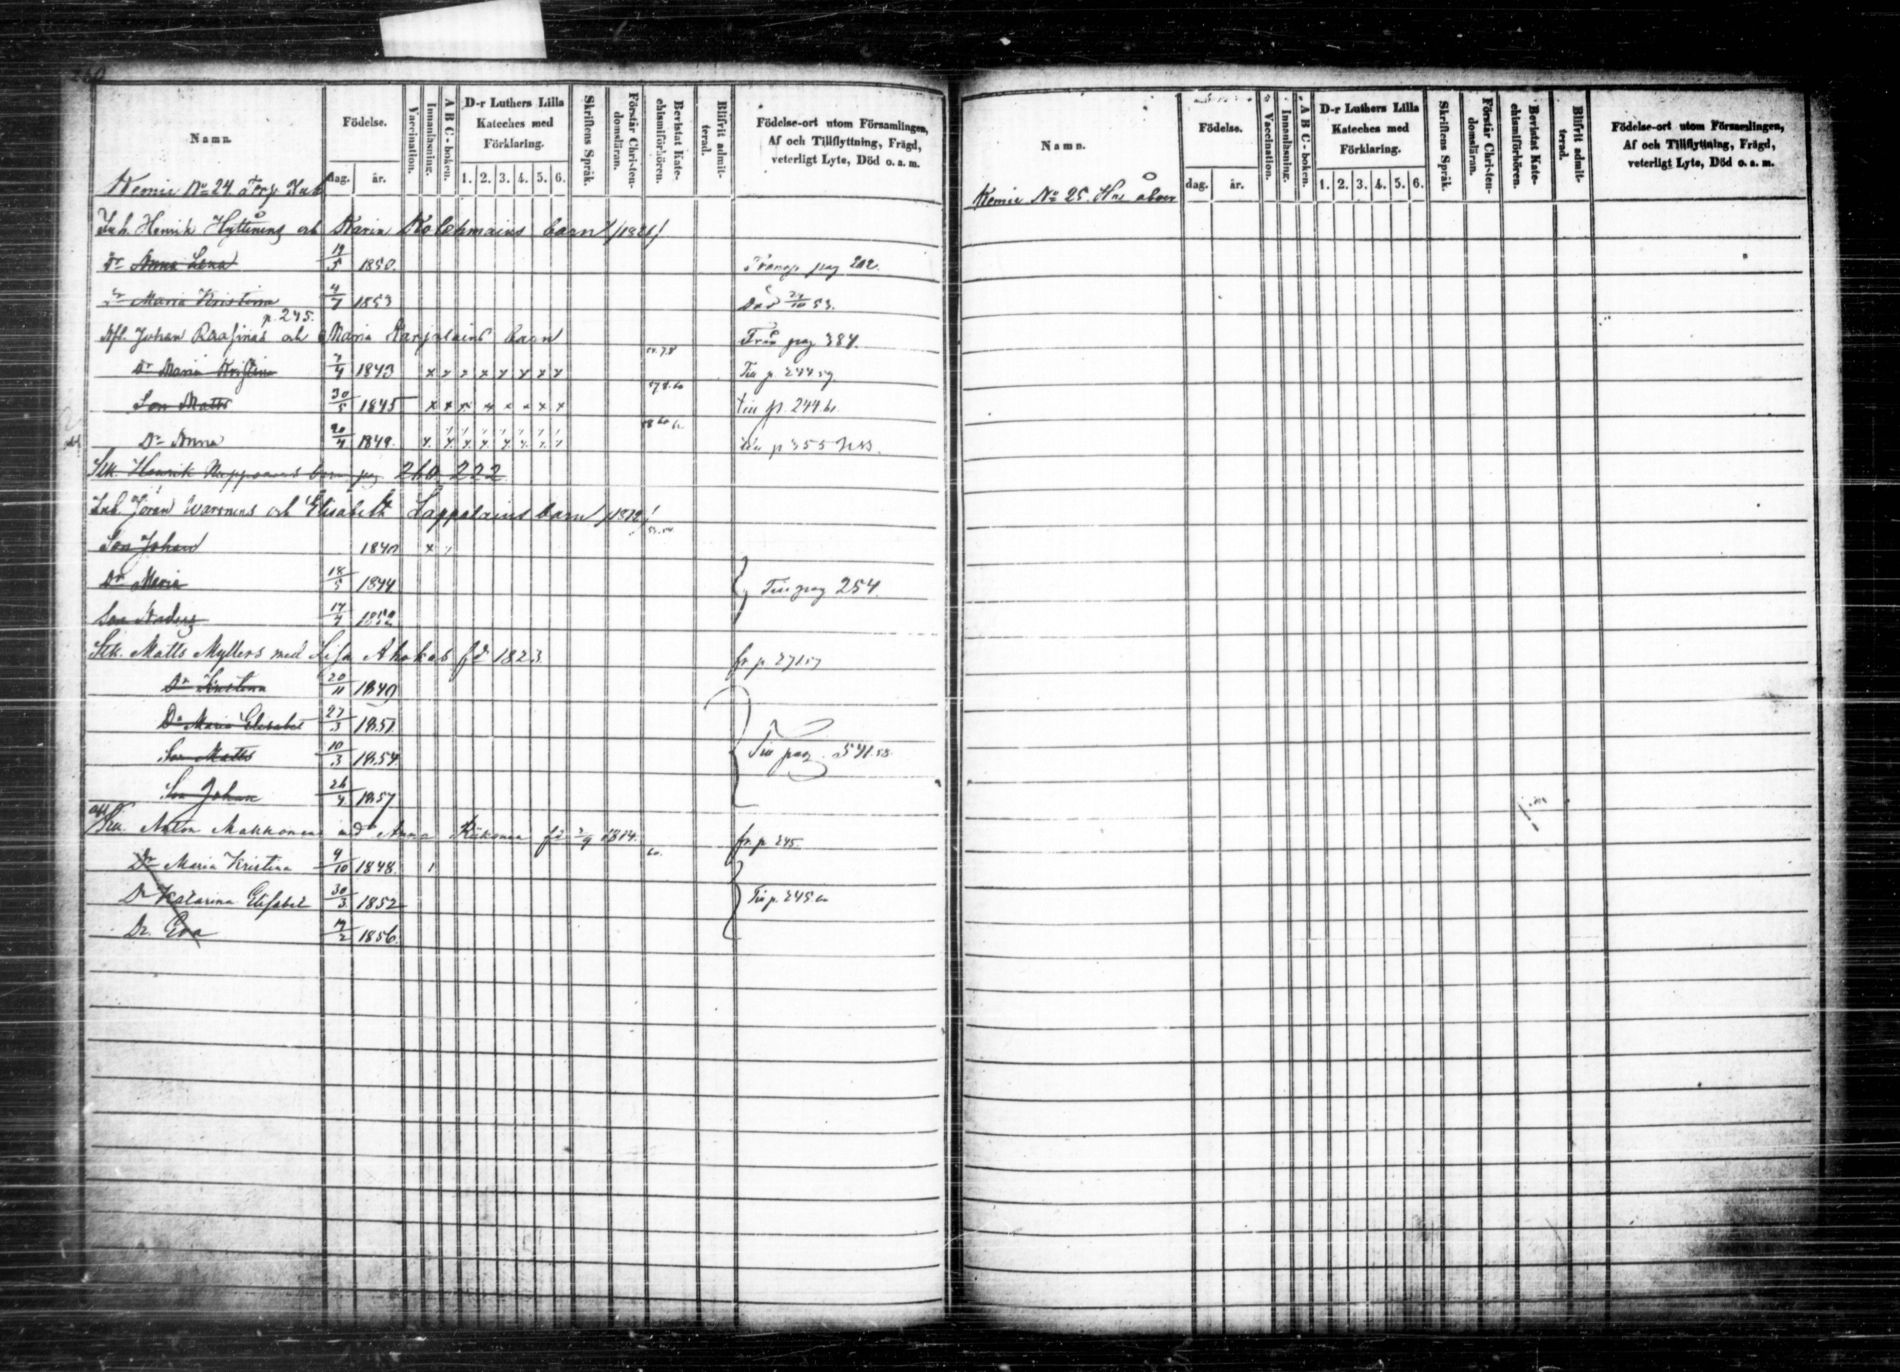 260
Namn.
Födelse.
dag. år.
Vaccination.
Innanläsning.
A B C-boken.
D-r Luthers Lilla
Kateches med
Förklaring.
1. 2. 3. 4. 5. 6.
Skriftens Språk.
Förstår Christen-
domsläran.
Bevistat Kate-
chismiförhören.
Blifvit admit-
terad.
Födelse-ort utom Församlingen,
Af och Tillflyttning, Frägd,
veterligt Lyte, Död o. a. m.
Kemie No 24
Inh. Henrik Hyttinens och Karin Kolehmains barn /1821/
Dr Anna Lena 19/5 1850. Transp pag 202.
Dr Maria Kristina 4/7 1853 Död 24/10 53.
p. 245.
Afl. Johan Raasinas och Maria Karjalains barn Från pag 384.
Dr Maria Kristina 7/4 1843 x x x x x x x x Till p. 244 59
Son Matts 30/5 1845 x x x x x x x x till p. 244 61.
Dr Anna 20/4 1849. x x x x x x x x till p 355
Stk. Henrik barn pag 260 222
Inh. Jöran Waronens och Elisabeth Lappalains barn /1812/
53.54
Son Johan 1840 x
Dr Maria 18/5 1844 Till pag 254.
Son Anders 17/4 1852
Stk. Matts Myllers med Lisa Ahokas fd 1823 fr. p. 271 57
Dr Kristina 20/11 1849
Dr Maria Elisabet 27/3 1851. Till pag. 571.58.
Son Matts 10/3 1854.
Son Johan 26/4 1857
Anton Makkonen med Anna Riikonen fd 2/9 1814. fr. p. 245
60.
Dr Maria Kristina 9/10 1848. 1
Dr Katarina Elisabet 30/3 1852 Till p. 245.60
Dr. Eva 17/2 1856.
Namn.
Födelse.
dag. år.
Vaccination.
Innanläsning.
A B C-boken.
D-r Luthers Lilla
Kateches med
Förklaring.
1. 2. 3. 4. 5. 6.
Skriftens Språk.
Förstår Christen-
domsläran.
Bevistat Kate-
chismiförhören.
Blifvit admit-
terad.
Födelse-ort utom Församlingen,
Af och Tillflyttning, Frägd,
veterligt Lyte, Död o. a. m.
Kemie No 25.